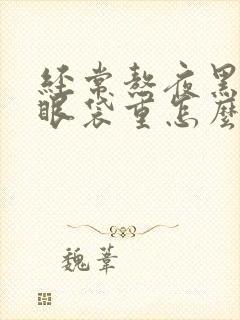 經常熬夜黑
眼袋重怎麼
魏葦